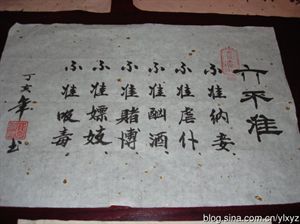 六不准
不准纳妾
不准虐仆
不准酗酒
不准赌博
不准嫖妓
不准吸毒
丁亥年
书
blog.sina.com.cn/ylxyz